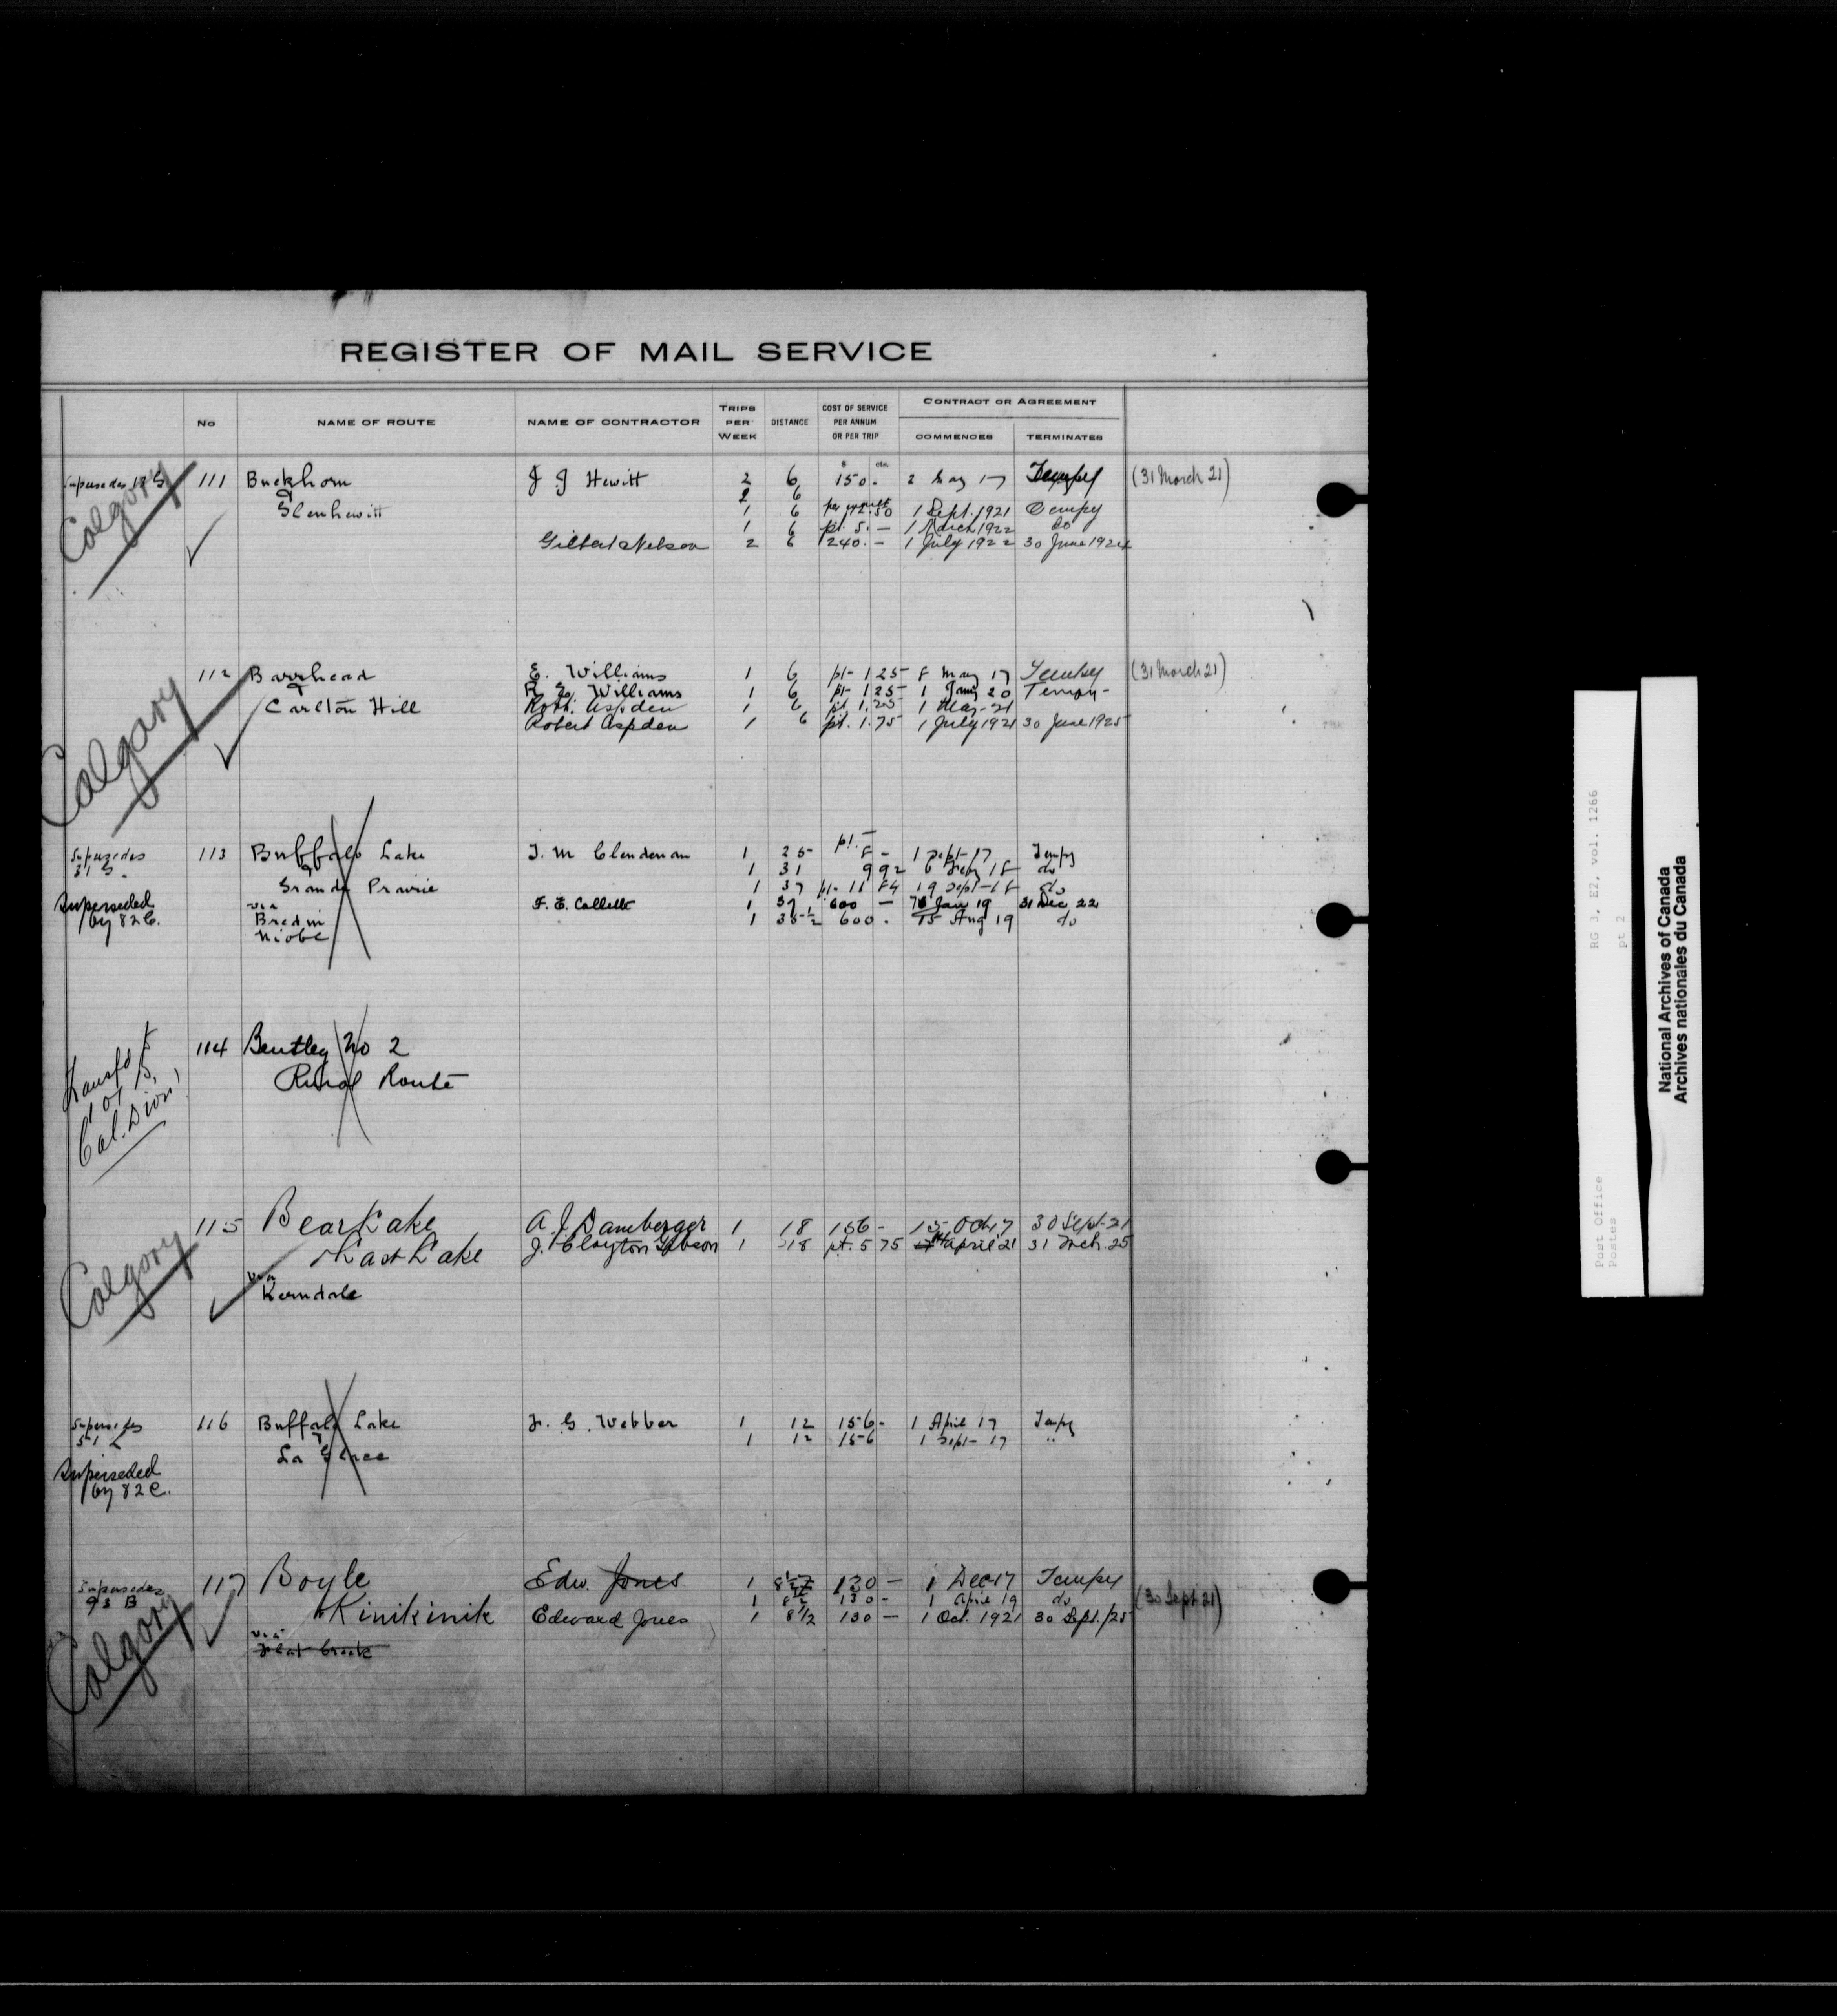 REGISTER OF MAIL SERVICE
No NAME OF ROUTE NAME OF CONTRACTOR TRIPS PER WEEK DISTANCE COST OF SERVICE PER ANNUM OR PER TRIP CONTRACT OR AGREEMENT
COMMENCES TERMINATES
$ cts.
Supersedes 111 Buckhorn J J Hewitt 2 6 150. 2 May 17 Tempy (31 March 21)
2 6
& Glenhewitt 1 6 12.50 1 Sept. 1921 Tempy
1 6 pt. 5. — 1 March 1922 do
Gilbert Nelson 2 6 240. — 1 July 1922 30 June 1924
Calgary
112 Barrhead E. Williams 1 6 pt- 1 25 8 May 17 Tempy (31 March 21)
& Williams 1 6 pt- 1 25 1 Jany 20 Tempy-
Carlton Hill Robt. Aspden 1 6 pt 1.25 1 Mar-21
Robert Aspden 1 6 pt. 1.75 1 July 1921 30 June 1925
Calgary
Supersedes 113 Buffalo Lake T. M Clendenan 1 25 pt. 8 — 1 Sept-17 Tempy
31 S. & 1 31 9 92 18 do
Grande Prairie 1 37 pt- 11 84 19 Sept-18 do
Superseded via F. E. Collett 1 37 600 — Jan 19 31 Dec 22
by 82 C. Bredin 1 35 1/2 600. 15 Aug 19 do
Niobe
114 Bentley No 2
Rural Route
Transfd to
Cal. Divn
115 Bear Lake A. J. Damberger 1 18 156 - 15 Oct 17 30 Sept-21
& East Lake J. Clayton Gibson 1 18 pt. 5 75 April 21 31 Mch. 25
via
Kerndale
Calgary
Supersedes 116 Buffalo Lake F. G. Webber 1 12 156- 1 April 17 Tempy
51 L & 1 12 156 1 Sept- 17 "
La Glace
Superseded
by 82 C.
Supersedes 117 Boyle Edw. Jones 1 8 1/2 130 — 1 Dec 17 Tempy
93 B 1 8 1/2 130 - 1 April 19 do (30 Sept 21)
& Kinikinik Edward Jones 1 8 1/2 130 — 1 Oct. 1921 30 Sept./25
via
Flat Creek
Calgary
RG 3, E2, vol. 1266
pt 2
Post Office
Postes
National Archives of Canada
Archives nationales du Canada